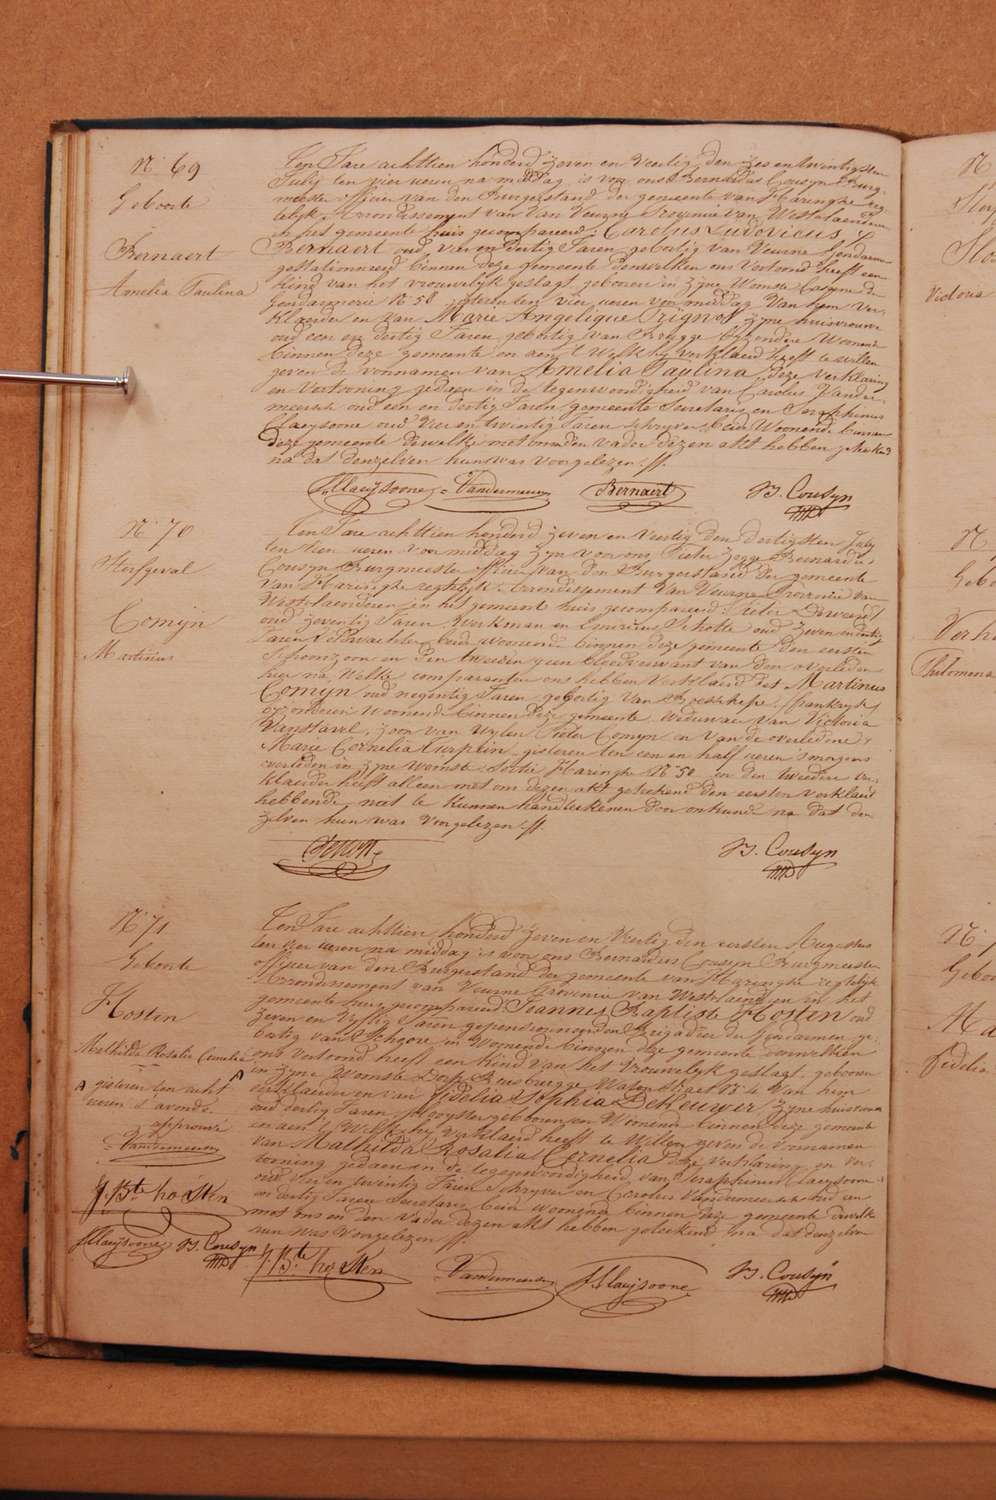 N° 69
Geboorte
Bernaert
Amelia Paulina
Ten Jare achttien honderd zeven en Veertig den zes en twintigsten
July ten vier ueren na middag is voor ons Bernardus Cousyn Burg-
meester officier van den Burgerstand der gemeente van Haringhe reg-
telyk Arrondissement van Veurne Provincie van Westvlaenderen
in het gemeente huis gecompareerd Carolus Ludovicus
Bernaert oud vier en dertig Jaren geboortig van Veurne Gendarm
gestationneerd binnen deze gemeente denwelken ons Vertoond heeft een
Kind van het vrouwelyk geslagt geboren in zyne Womste Casyne der
Gendarmerie N° 58 gisteren ten vier ueren voor middag Van hem Ver-
klaerder en van Marie Angelique Trignol zyne huisvrouw
oud een en dertig Jaren geboortig van Brugge byzondere Woonende
binnen deze gemeente en aen 't Welk hy verklaerd heeft te willen
geven de voornamen van Amelia Paulina deze verklaring
en Vertooning gedaen in de tegenwoordigheid van Carolus Vander-
meersch oud een en dertig Jaren gemeente Secretaris en Seraphinus
Claeysoone oud Vier en twintig Jaren schryver beide Woonende binnen
deze gemeente dewelke met ons en den vader dezen akt hebben geteekend
na dat denzelven hun was voorgelezen ./.
S. Claeysoone Vandermeersch Bernaert B. Cousyn
N° 70
Sterfgeval
Comyn
Martinus
Ten Jare achttien honderd zeven en Veertig den dertigsten July
ten tien ueren voor middag zyn voor ons Bernardus
Cousyn Burgmeester officier van den Burgerstand der gemeente
van Haringhe regtelyk Arrondissement Van Veurne Provincie van
Westvlaenderen in het gemeente huis gecompareerd Pieter
oud zeventig Jaren Werkman en Scholte oud zeven en dertig
Jaren Veldwachter beide woonende binnen deze gemeente den eersten
Schoonzoon en den tweeden geen bloedverwant van den overleden
hier na, Welke comparanten ons hebben Verklaerd dat Martinus
Comyn oud negentig Jaren geboortig Van (frankryk)
byzonderen Woonende binnen deze gemeente Weduwaer van Victoria
Vanstavel, zoon van Wylen Pieter Comyn en van de overledene
Marie Cornelia gisteren ten een en half ueren 's morgens
overleden in zyne Womste Sectie Haringhe N° 50 en den tweeden ver-
klaerder heeft alleen met ons dezen akt geteekend den eersten verklaerd
hebbende niet te Kunnen handteekenen door onkunde na dat den-
zelven hun was Voorgelezen ./.
B. Cousyn
N° 71
Geboorte
Hosten
Mathilda Rosalia Cornelia
A gisteren ten acht A
ueren 's avonds.
approuvé
Vandermeersch
J. Bte hosten
S. Claeysoone B. Cousyn
Ten Jare achttien honderd zeven en Veertig den eersten Augustus
ten vier ueren na middag is voor ons Bernardus Cousyn Burgmeester
officier van den Burgerstand der gemeente van Haringhe regtelyk
Arrondissement van Veurne Provincie van Westvlaenderen in het
gemeente huis gecompareerd Joannes Baptiste Hosten oud
zeven en Vyftig Jaren gepensionneerden Brigadier der Gendarmen ge-
boortig van en Woonende binnen deze gemeente denwelken
ons vertoond heeft een Kind van het Vrouwelyk geslagt, geboren
in zyne Womste Dorp Rousbrugge Waten straet N° 14 Van hem
verklaerder en van Fidelia Sophia Dekeuwer zyne huisvrouw
oud dertig Jaren geboren en Woonende binnen deze gemeente
en aen 't Welk hy Verklaerd heeft te Willen geven de voornamen
van Mathilda Rosalia Cornelia deze Verklaring en ver-
tooning gedaen in de tegenwoordigheid van Seraphinus Claeysoone
oud Vier en twintig Jaren Schryver en Carolus Vandermeersch oud een
en dertig Jaren Secretaris beide woonende binnen deze gemeente dewelke
met ons en den Vader dezen akt hebben geteekend na dat denzelven
hun was Voorgelezen ./.
J. Bte hosten Vandermeersch S. Claeysoone B. Cousyn
N°
Victoria
N°
Gebo
Verh
Philomena
N°
Geboo
Ma
Fidelia